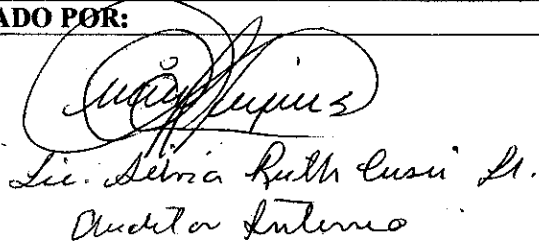 ADO POR:
Lic. Silvia Ruth Cusi Ll.
Auditor Interno